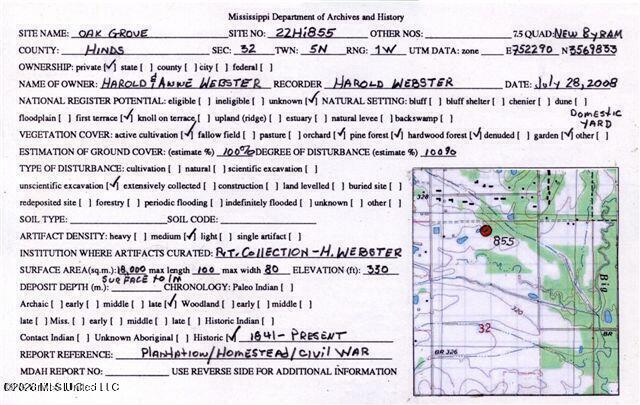 Mississippi Department of Archives and History
SITE NAME: OAK GROVE SITE NO: 22Hi855 OTHER NOS: 7.5 QUAD: NEW BYRAM
COUNTY: HINDS SEC: 32 TWN: 5N RNG: 1W UTM DATA: zone E752290 N3569833
OWNERSHIP: private [√] state [ ] county [ ] city [ ] federal [ ]
NAME OF OWNER: HAROLD & ANNE WEBSTER RECORDER HAROLD WEBSTER DATE: July 28, 2008
NATIONAL REGISTER POTENTIAL: eligible [ ] ineligible [ ] unknown [√] NATURAL SETTING: bluff [ ] bluff shelter [ ] chenier [ ] dune [ ]
floodplain [ ] first terrace [√] knoll on terrace [ ] upland (ridge) [ ] estuary [ ] natural levee [ ] backswamp [ ] DOMESTIC YARD
VEGETATION COVER: active cultivation [√] fallow field [ ] pasture [ ] orchard [√] pine forest [√] hardwood forest [√] denuded [ ] garden [√] other [ ]
ESTIMATION OF GROUND COVER: (estimate %) 100% DEGREE OF DISTURBANCE (estimate %) 100%
TYPE OF DISTURBANCE: cultivation [ ] natural [ ] scientific excavation [ ]
unscientific excavation [√] extensively collected [ ] construction [ ] land levelled [ ] buried site [ ]
redeposited site [ ] forestry [ ] periodic flooding [ ] indefinitely flooded [ ] unknown [ ] other [ ]
SOIL TYPE: SOIL CODE:
ARTIFACT DENSITY: heavy [ ] medium [√] light [ ] single artifact [ ]
INSTITUTION WHERE ARTIFACTS CURATED: PVT. COLLECTION - H. WEBSTER
SURFACE AREA(sq.m.): 18,000 max length 100 max width 80 ELEVATION (ft): 330
DEPOSIT DEPTH (m.): SURFACE TO 1M CHRONOLOGY: Paleo Indian [ ]
Archaic [ ] early [ ] middle [ ] late [√] Woodland [ ] early [ ] middle [ ]
late [ ] Miss. [ ] early [ ] middle [ ] late [ ] Historic Indian [ ]
Contact Indian [ ] Unknown Aboriginal [ ] Historic [√] 1841 - PRESENT
REPORT REFERENCE: PLANTATION/HOMESTEAD/CIVIL WAR
MDAH REPORT NO: USE REVERSE SIDE FOR ADDITIONAL INFORMATION
328
855
Big
320
32
BR
BR 326